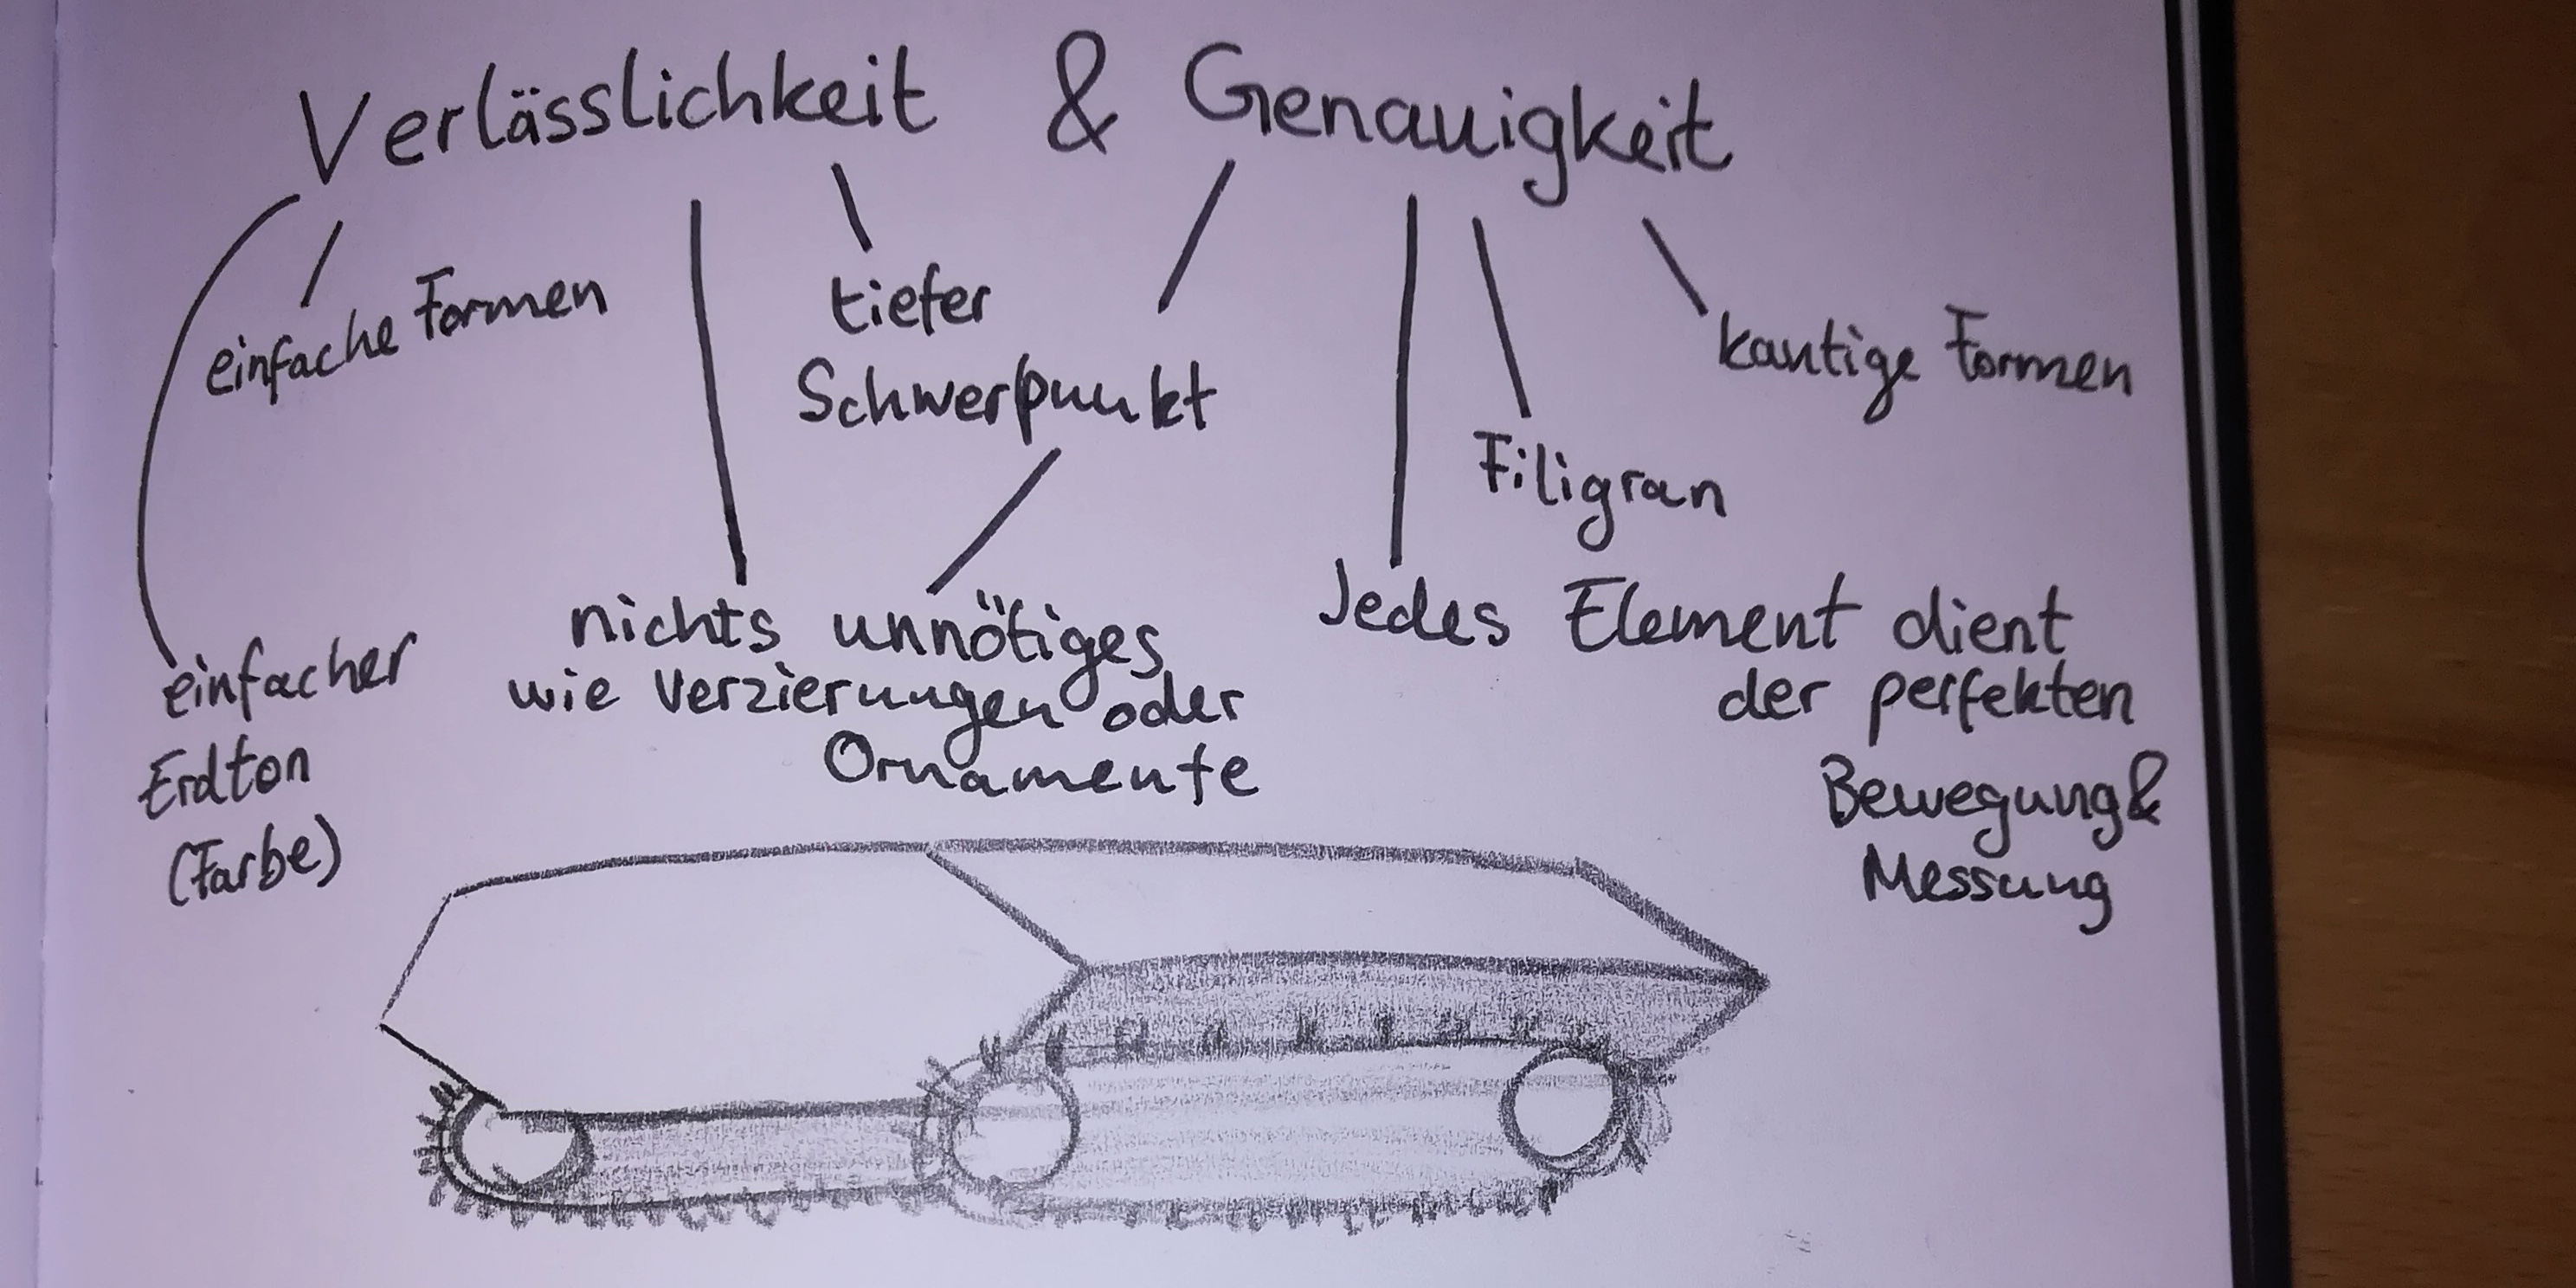 Verlässlichkeit & Genauigkeit
einfache Formen
tiefer
Schwerpunkt
kantige Formen
Filigran
einfacher
Erdton
(Farbe)
nichts unnötiges
wie Verzierungen oder
Ornamente
Jedes Element dient
der perfekten
Bewegung&
Messung